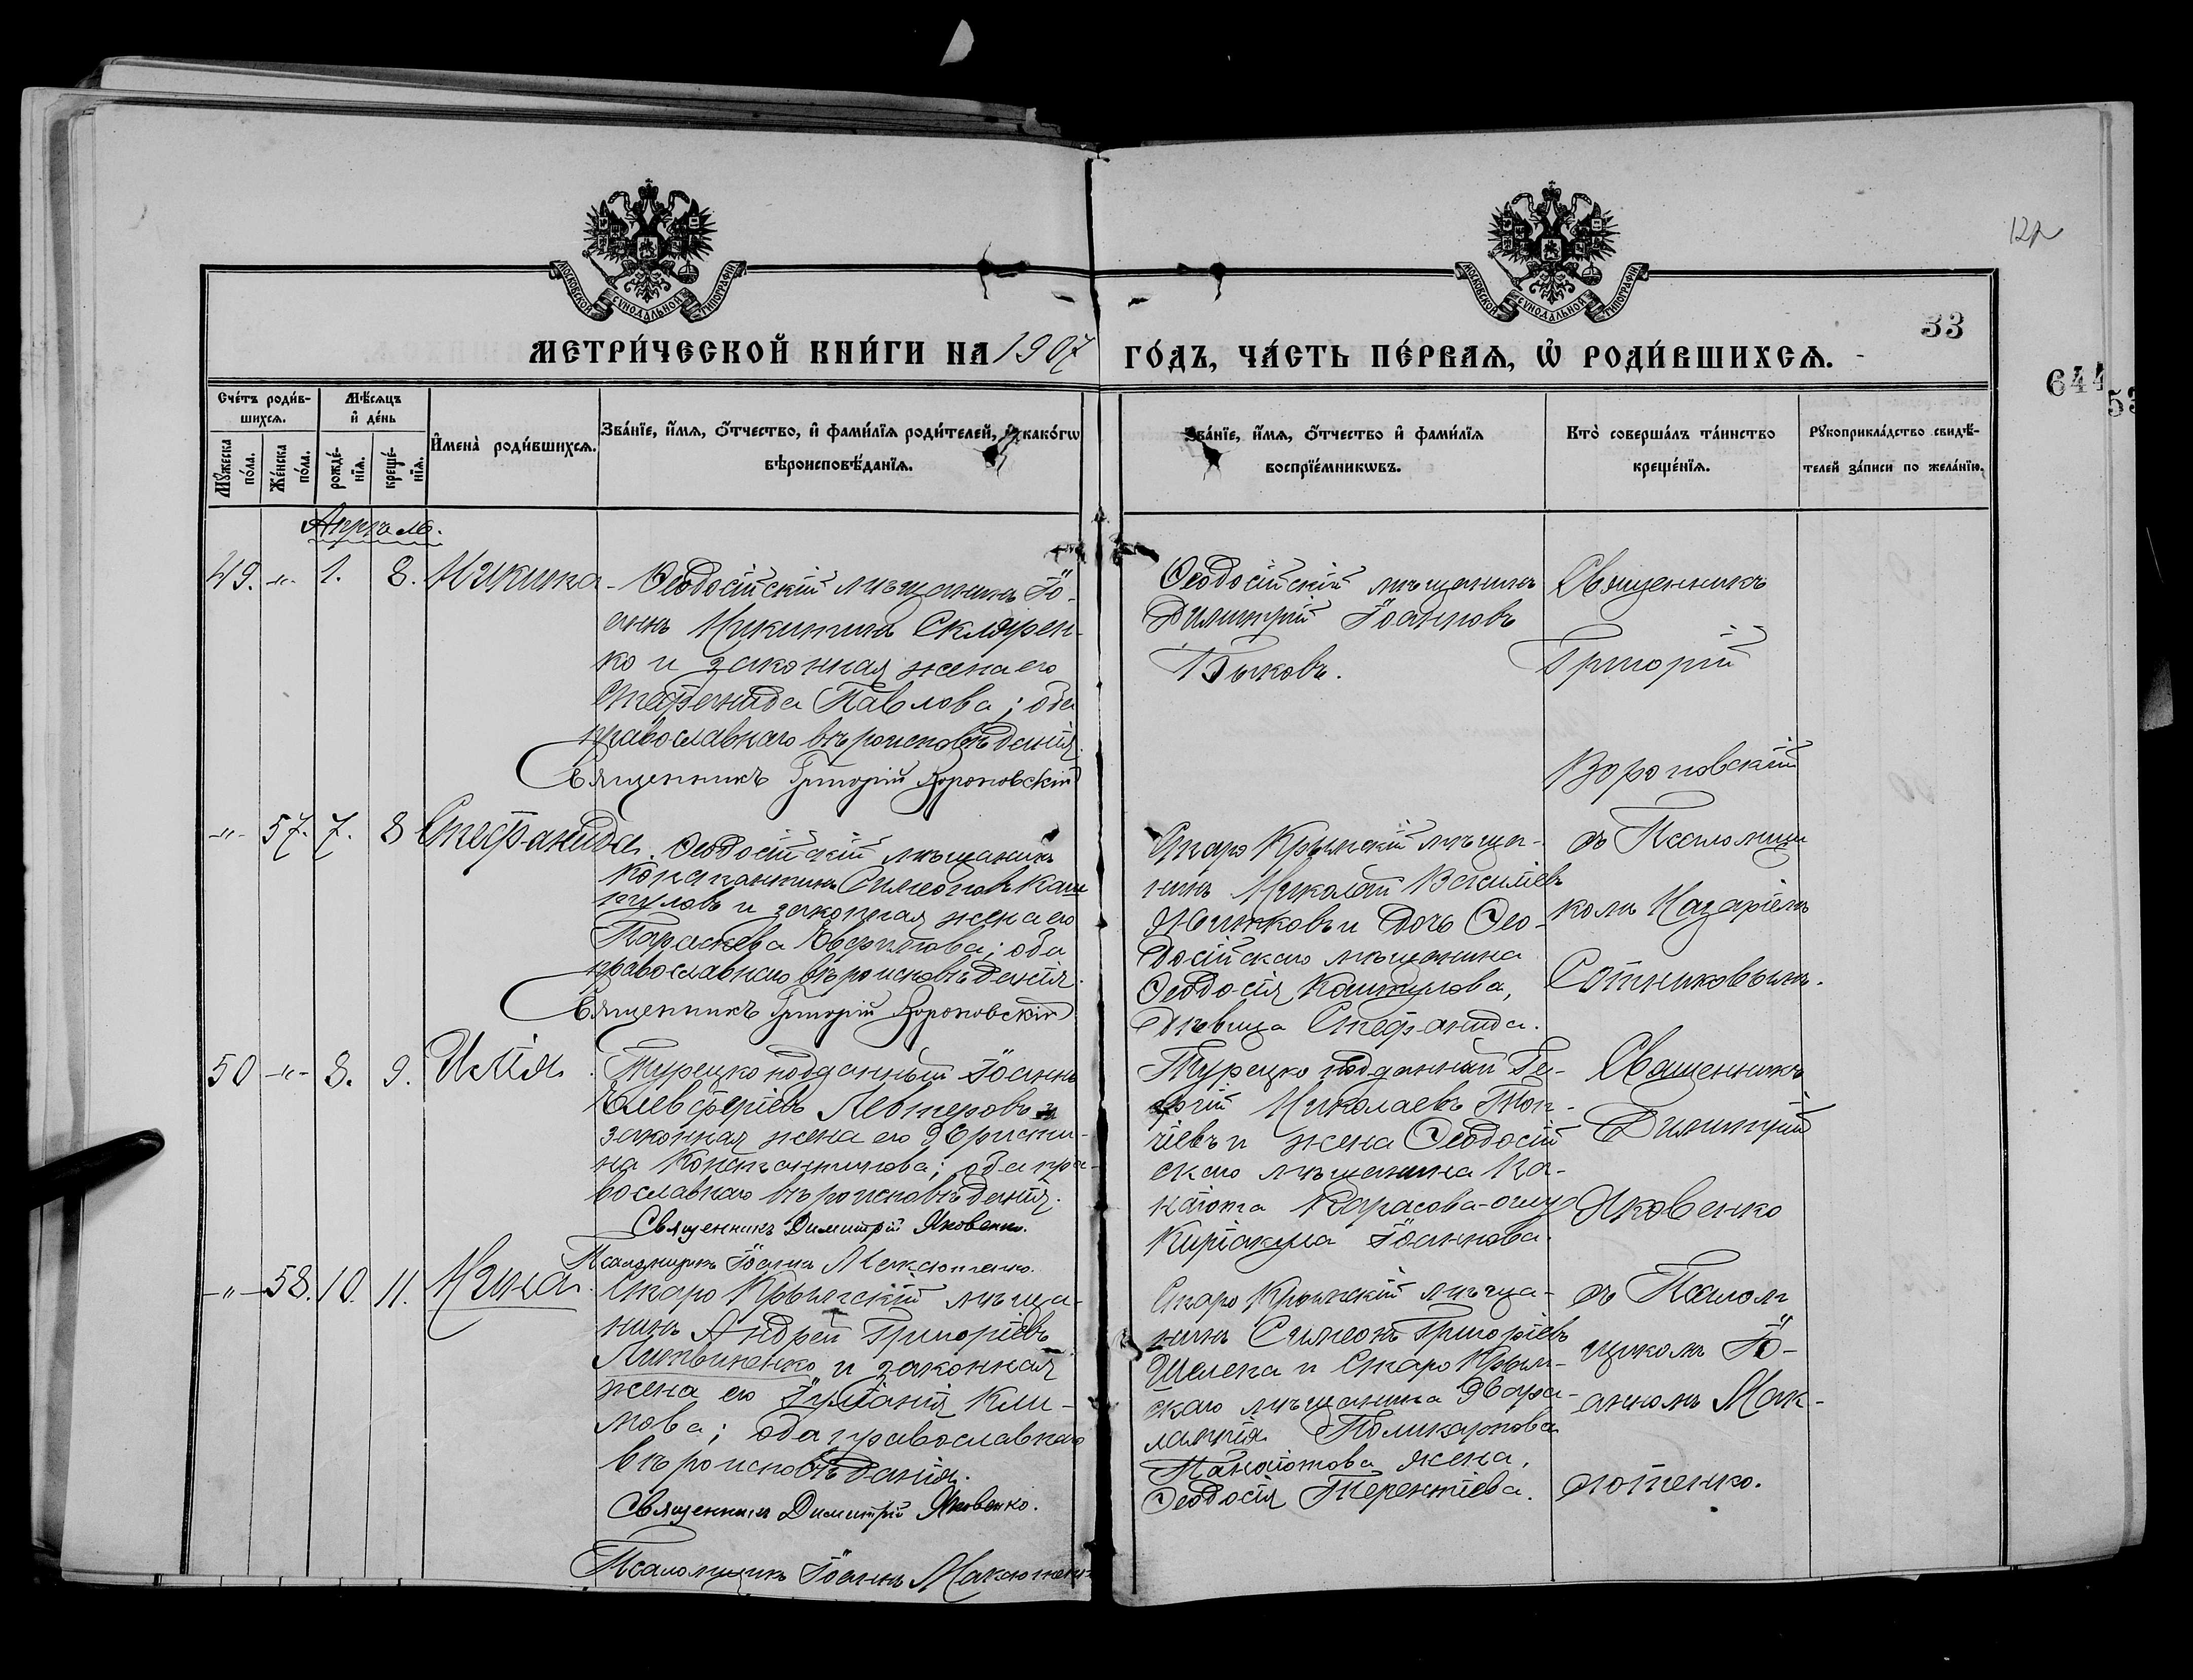 12
33
644
МОСКОВСКОЙ СѴНОДАЛЬНОЙ ТИПОГРАФІИ
МОСКОВСКОЙ СѴНОДАЛЬНОЙ ТИПОГРАФІИ
МЕТРИ́ЧЕСКОЙ КНИ́ГИ НА 1907 ГО́ДЪ, ЧА́СТЬ ПЕ́РВАѦ, Ѡ҆ РОДИ́ВШИХСѦ.
Сче́тъ роди́в-
шихсѧ.
Мꙋ́жеска по́ла.
Же́нска по́ла.
Мѣ́сѧцъ
и҆ де́нь
рожде́-
нїѧ.
креще́-
нїѧ.
И҆мена̀ роди́вшихсѧ.
Зва́нїе, и҆́мѧ, ѻ҆́тчество, и҆ фами́лїѧ роди́телей, и҆ како́гѡ
вѣроисповѣ́данїѧ.
Зва́нїе, и҆́мѧ, ѻ҆́тчество и҆ фами́лїѧ
воспрїе́мникѡвъ.
Кто̀ соверша́лъ та́инство
креще́нїѧ.
Рꙋкоприкла́дство свидѣ́-
телей за́писи по жела́нїю.
Апрѣль.
49. -"- 1. 8. Никита
Ѳеодосійскій мѣщанинъ Іо-
аннъ Никитинъ Склярен-
ко и законная жена его
Стефанида Павлова; оба
православнаго вѣроисповѣданія.
Священникъ Григорій Вороновскій
Ѳеодосійскій мѣщанинъ
Димитрій Іоанновъ
Быковъ.
Священникъ
Григорій
Вороновскій
-"- 57. 7. 8 Стефанида.
Ѳеодосійскій мѣщанинъ
Константинъ Симеоновъ Каш
и законная жена его
Параскева оба
православнаго вѣроисповѣданія.
Священникъ Григорій Вороновскій
Старо Крымскій мѣща-
нинъ Николай Василіевъ
и дочь Ѳео-
досійскаго мѣщанина
Ѳеодосія
дѣвица Стефанида.
съ Псаломщи
комъ Назаріемъ
Сотниковымъ.
50 -"- 8. 9. Илія.
Турецко подданный Іоаннъ
Елевферіевъ Левтеровъ и
законная жена его Христи-
на Константинова; оба пра-
вославнаго вѣроисповѣданія.
Священникъ Димитрій Яковенко.
Псаломщикъ Іоаннъ Максютенко.
Турецко подданный Ге-
оргій Николаевъ Топ-
чіевъ и жена Ѳеодосій
скаго мѣщанина Па-
наіота Карасова-оглу
Киріакула Іоаннова.
Священникъ
Димитрій
Яковенко
-"- 58. 10. 11. Нина.
Старо Крымскій мѣща-
нинъ Андрей Григоріевъ
Литвиненко и законная
жена его Іуліанія Кли-
мова; оба православнаго
вѣроисповѣданія.
Священникъ Димитрій Яковенко.
Псаломщикъ Іоаннъ Максютенко
Старо Крымскій мѣща-
нинъ Симеонъ Григоріевъ
Шелека и Старо Крым-
скаго мѣщанина Хара-
лампія Поликарпова
Панаіотова жена,
Ѳеодосія Терентіева.
съ Псалом
щикомъ Іо-
анномъ Мак-
сютенко.